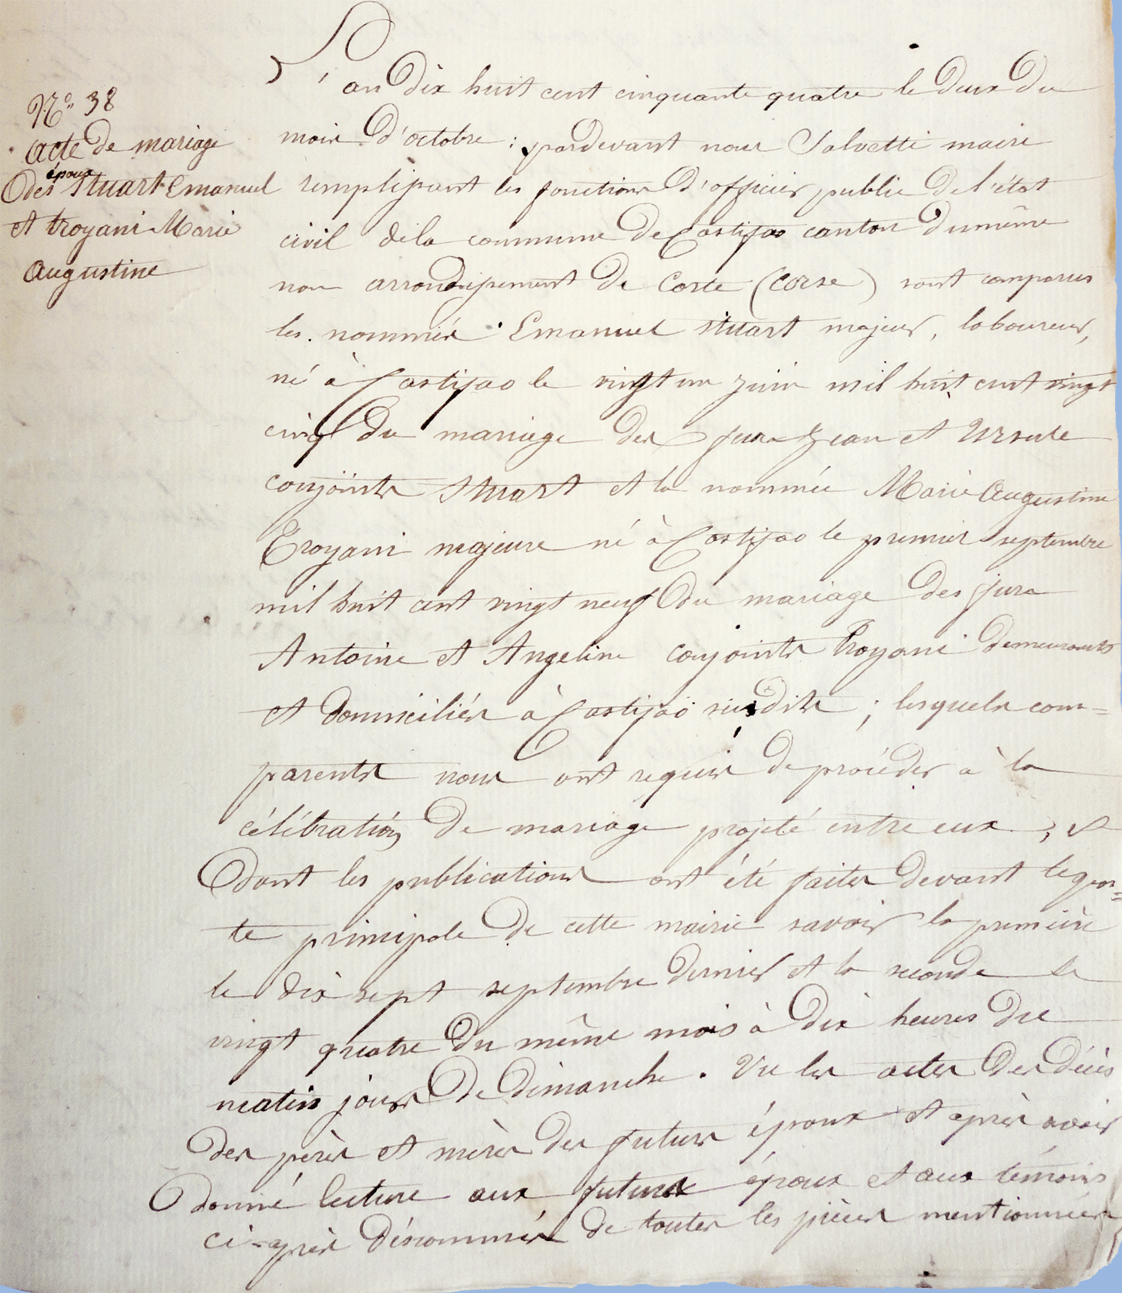 N° 38
acte de mariage
des époux Stuart Emanuel
et troyani Marie
Augustine
L'an dix huit cent cinquante quatre le deux du
mois d'octobre : pardevant nous Salvetti maire
remplissant les fonctions d'officier public de l'état
civil de la commune de Castifao canton du même
nom arrondissement de Corte (Corse) sont comparus
les nommés Emanuel Stuart majeur, laboureur,
né à Castifao le vingt un juin mil huit cent vingt
cinq du mariage des feux Jean et Ursule
conjoints Stuart et la nommée Marie Augustine
Troyani majeure né à Castifao le premier septembre
mil huit cent vingt neuf du mariage des feux
Antoine et Angeline conjoints Troyani demeurants
et domiciliés à Castifao susdite ; lesquels com=
parents nous ont requis de procéder à la
célébration de mariage projeté entre eux, et
dont les publications ont été faites devant la por=
te principale de cette mairie savoir la première
le dix sept septembre dernier et la seconde le
vingt quatre du même mois à dix heures du
matin jours de dimanche. Vu les actes des décès
des pères et mères des futurs époux et après avoir
donné lecture aux futurs époux et aux témoins
ci-après dénommés de toutes les pièces mentionnées